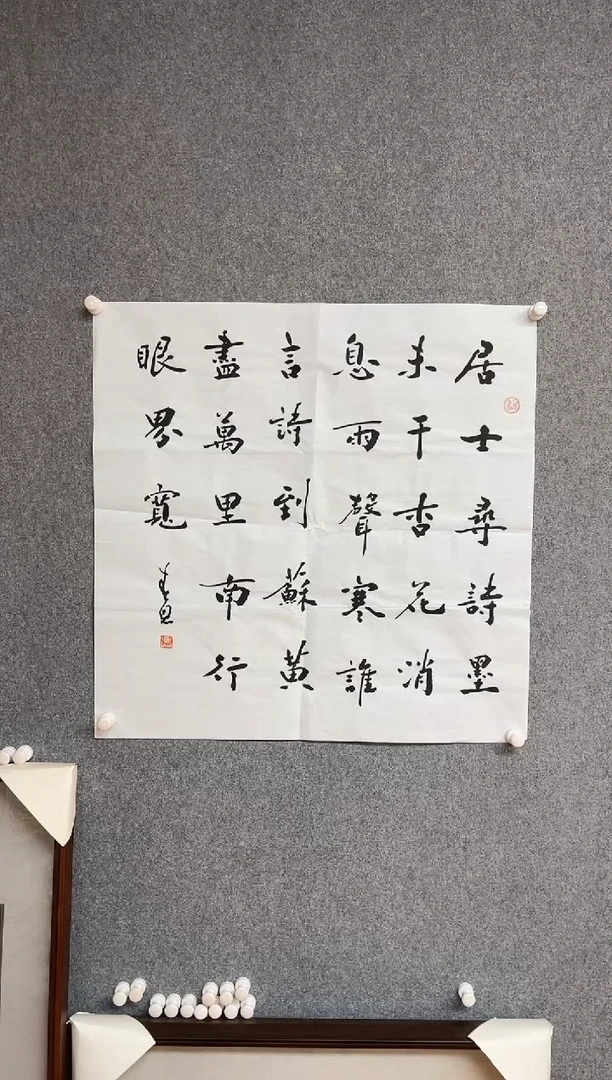 居士尋詩墨
未干杏花消
息雨聲寒誰
言詩到蘇黃
盡萬里南行
眼界寬